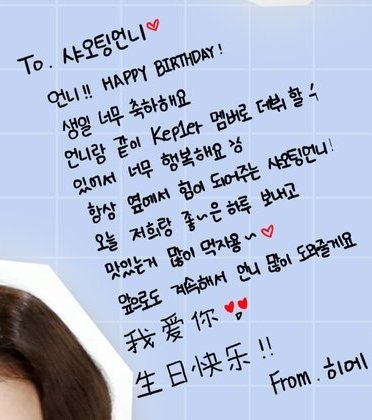 To. 샤오팅언니♥
언니!! HAPPY BIRTHDAY!
생일 너무 축하해요
언니랑 같이 Kep1er 멤버로 데뷔 할 수
있어서 너무 행복해요
항상 옆에서 힘이 되어주는 샤오팅언니!
오늘 저희랑 좋~은 하루 보내고
맛있는거 많이 먹자용~♥
앞으로도 계속해서 언니 많이 도와줄게요
我爱你♥♥
生日快乐!!
From. 히에